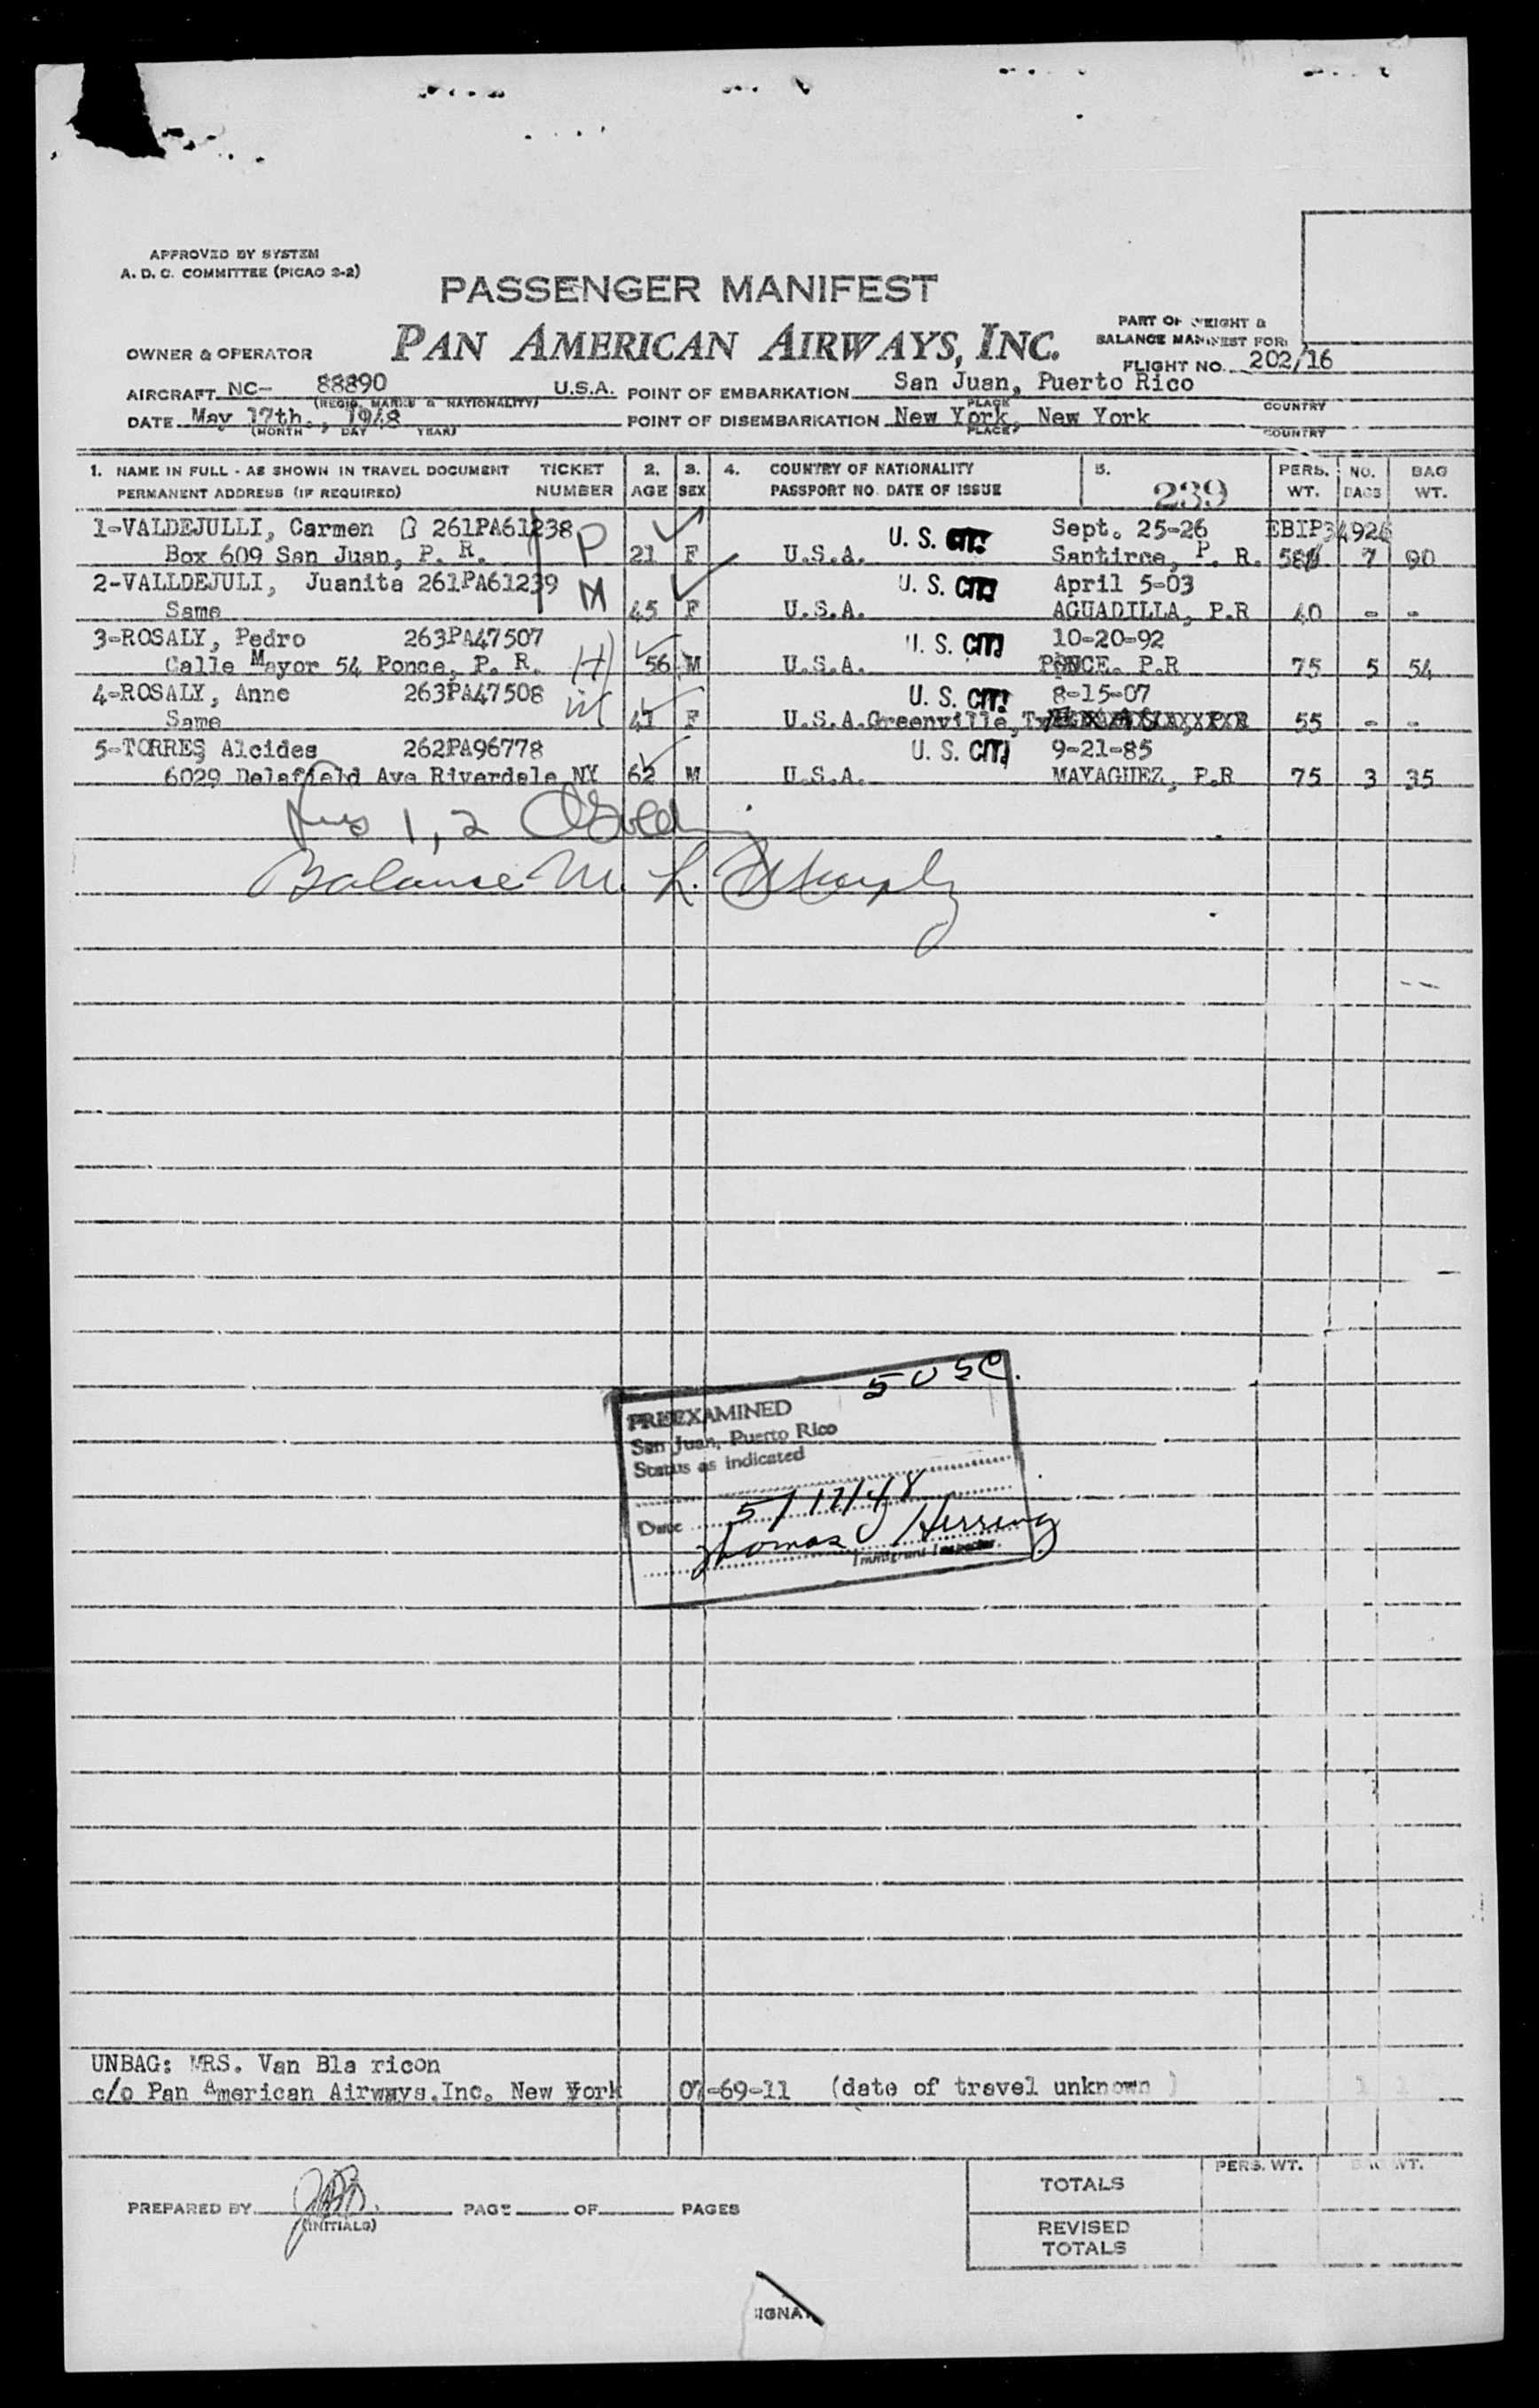 APPROVED BY SYSTEM
A. D. C. COMMITTEE (PICAO 2-2)
PASSENGER MANIFEST
PAN AMERICAN AIRWAYS, INC.
PART OF WEIGHT &
BALANCE MANIFEST FOR:
FLIGHT NO. 202/16
OWNER & OPERATOR
AIRCRAFT NC- 88890 U.S.A. POINT OF EMBARKATION San Juan, Puerto Rico
(REGIS. MARKS & NATIONALITY) PLACE COUNTRY
DATE May 17th., 1948 POINT OF DISEMBARKATION New York, New York
(MONTH DAY YEAR) PLACE COUNTRY
1. NAME IN FULL - AS SHOWN IN TRAVEL DOCUMENT TICKET 2. 3. 4. COUNTRY OF NATIONALITY 5. PERS. NO. BAG
PERMANENT ADDRESS (IF REQUIRED) NUMBER AGE SEX PASSPORT NO. DATE OF ISSUE 239 WT. BAGS WT.
1-VALDEJULLI, Carmen 261PA61238 P U. S. CIT. Sept. 25-26 EBIP34926
Box 609 San Juan, P. R. 21 F U.S.A. Santirce, P. R. 7 90
2-VALLDEJULI, Juanita 261PA61239 M U. S. CIT. April 5-03
Same 45 F U.S.A. AGUADILLA, P.R 40 - -
3-ROSALY, Pedro 263PA47507 H U. S. CIT. 10-20-92
Calle Mayor 54 Ponce, P. R. 56 M U.S.A. PONCE. P.R 75 5 54
4-ROSALY, Anne 263PA47508 W U. S. CIT. 8-15-07
Same 41 F U.S.A. Greenville, Tx 55 - -
5-TORRES Alcides 262PA96778 U. S. CIT. 9-21-85
6029 Delafield Ave Riverdale NY 62 M U.S.A. MAYAGUEZ, P.R 75 3 35
1, 2
Balance M. L. Murphy
5 USC.
PREEXAMINED
San Juan, Puerto Rico
Status as indicated
Date 5/17/48
Thomas J Herring
Immigrant Inspector.
UNBAG: MRS. Van Bla ricon
c/o Pan American Airways.Inc. New York 07-69-11 (date of travel unknown ) 1
PERS. WT. BAG WT.
TOTALS
PREPARED BY PAGE OF PAGES
(INITIALS)
REVISED
TOTALS